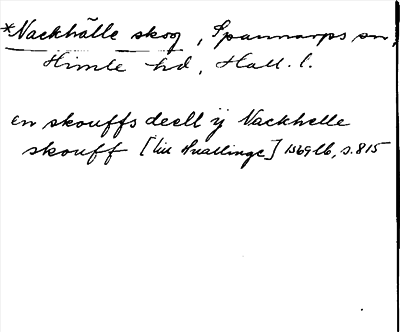 *Nackhälle skog, Spannarps sn,
Himle hd, Hall. l.
en skouffs deell ij Nackhelle
skouff [till Huallinge] 1569 lb, s. 815